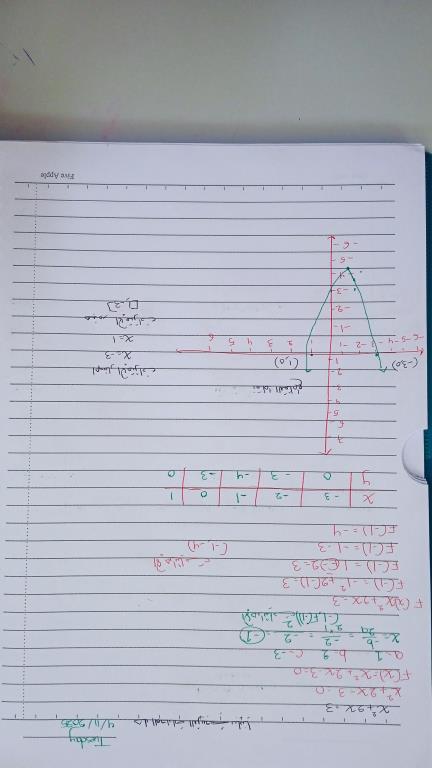 Tuesday
4/11/2025
حل المعادلات التربيعية بيانيا
x²+2x=3
x²+2x-3=0
F(x)=x²+2x-3=0
a=1 b=2 c=-3
x=-b/2a = -2/2·1 = -2/2 = -1
(-1, F(-1))
F(x)x²+2x-3
F(-1)=-1²+2(-1)-3
F(-1)=1(-2)-3
F(-1)=-1-3 (-1,-4)
F(-1)=-4
x -3 -2 -1 0 1
y 0 -3 -4 -3 0
7
6
5
4
3
2
1
(-3,0) (1,0)
-6 -5 -4 -3 -2 -1 1 2 3 4 5 6
-1
-2
-3
-4
-5
-6
x=-3
x=1
Five Apple